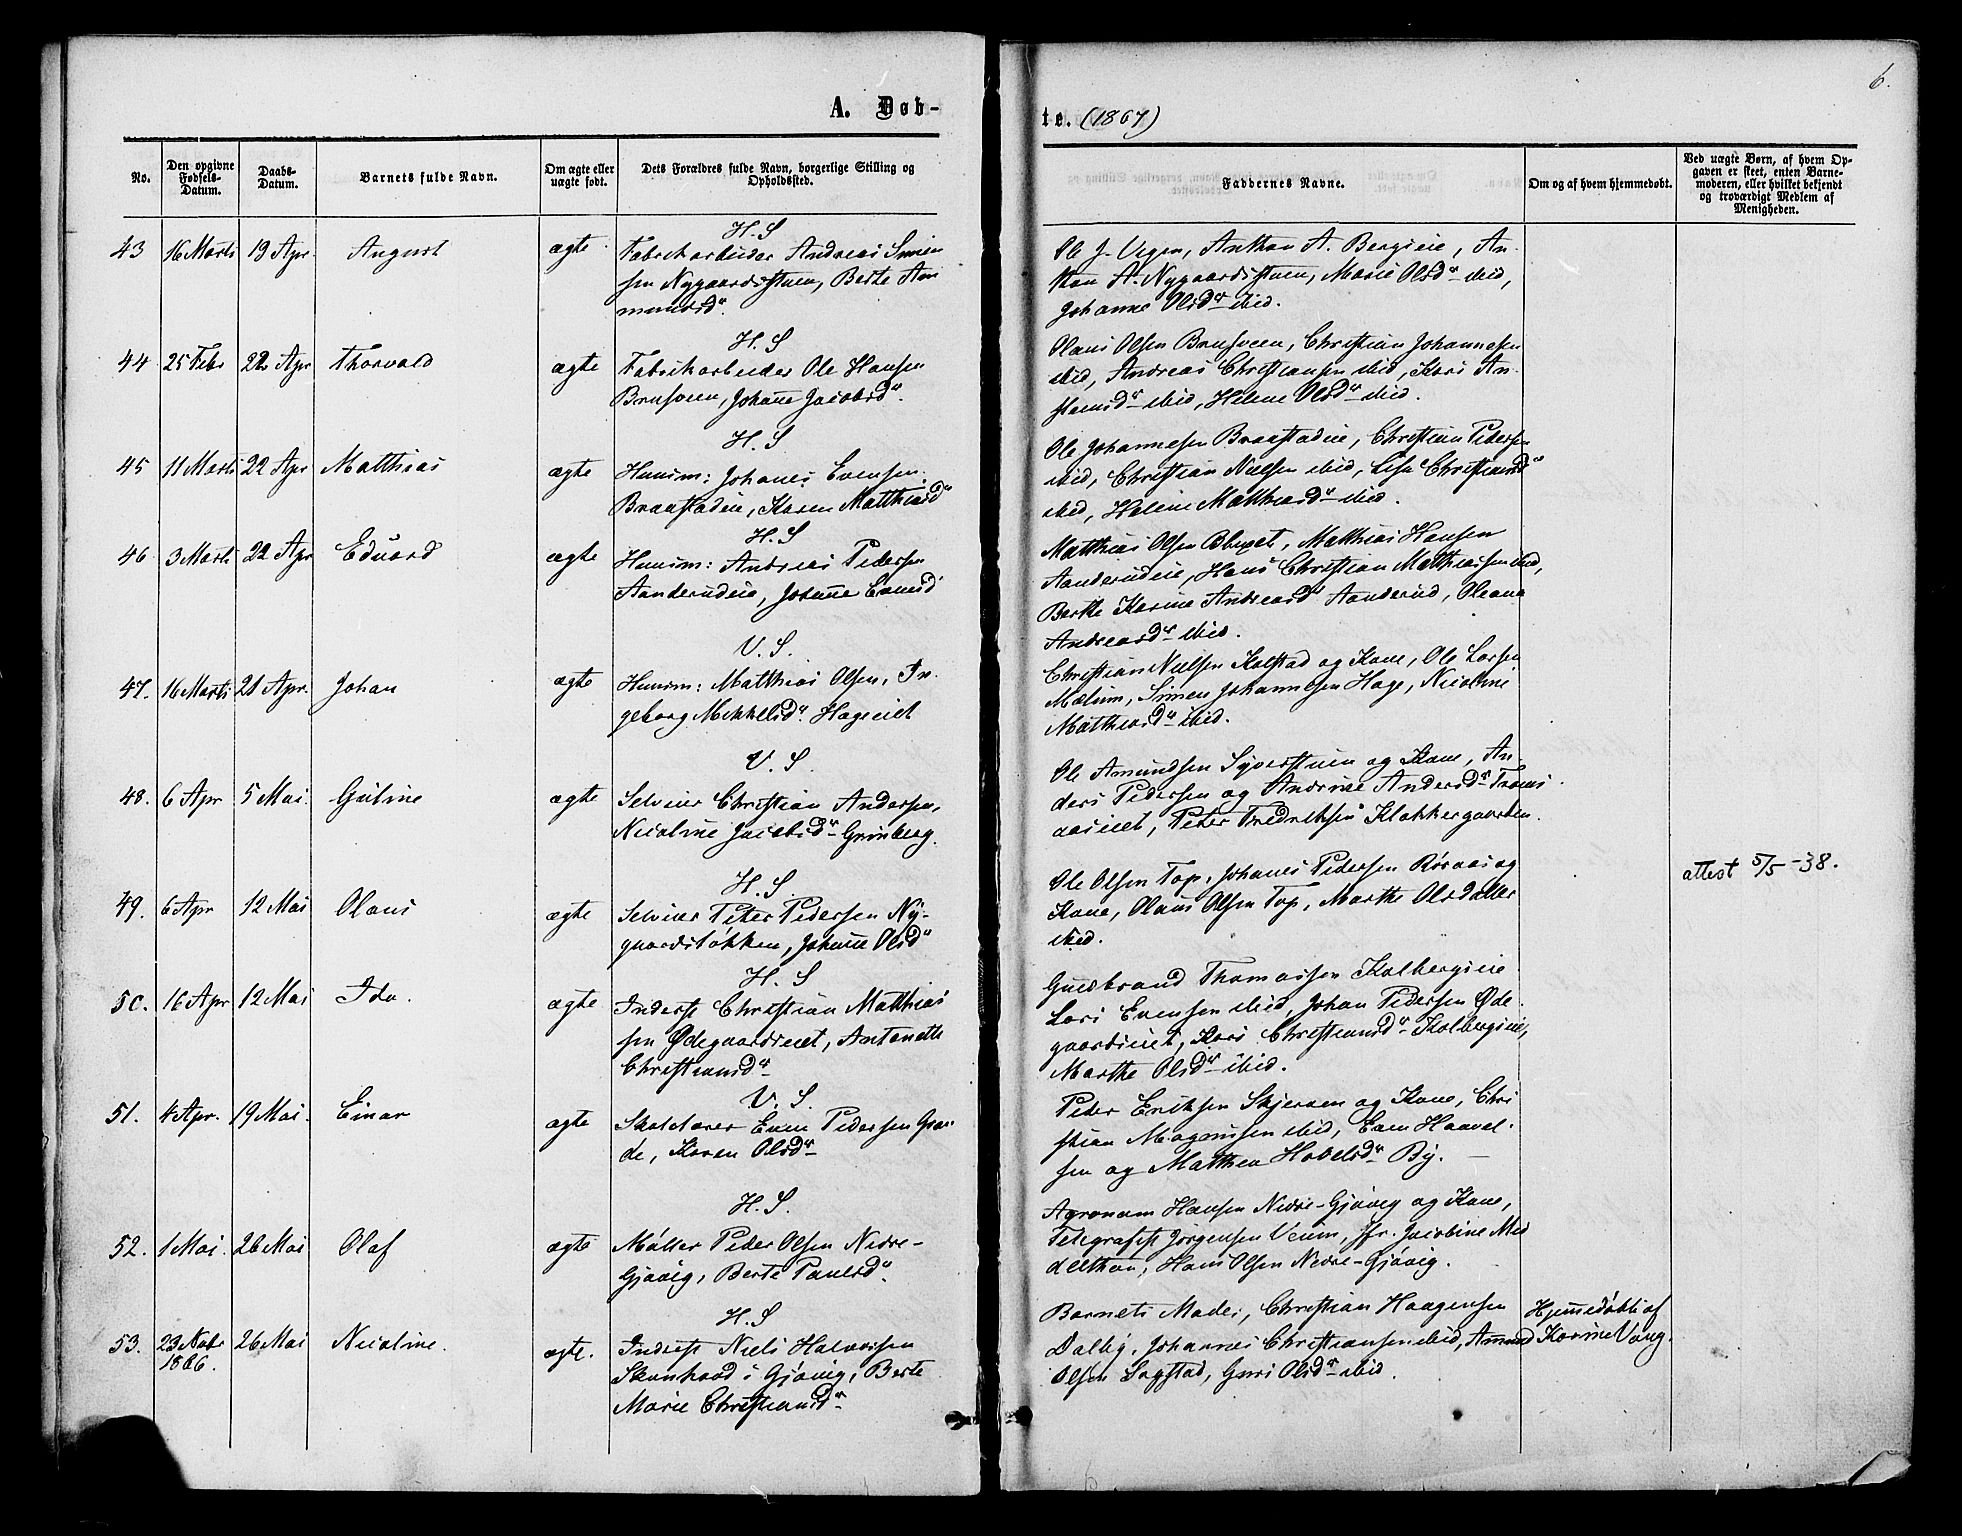 6.
A. Døb-
te. (1867)
No.
Den opgivne Fødsels-Datum.
Daabs-Datum.
Barnets fulde Navn.
Om ægte eller uægte født.
Dets Forældres fulde Navn, borgerlige Stilling og Opholdssted.
Faddernes Navne.
Om og af hvem hjemmedøbt.
Ved uægte Børn, af hvem Opgaven er skeet, enten Barnemoderen, eller hvilket bekjendt og troværdigt Medlem af Menigheden.
H. S
43 16 Marts 19 Apr. August ægte Fabrikarbeider Andreas Simen
sen Nygaardsstuen, Berte Am
mundsd.
Ole J. Vegen, Anthon A. Bergseie, An-
ton A. Nygaardsstuen, Marie Olsdr ibid,
Johanne Olsdr ibid.
H. S
44 25 Febr 22 Apr Thorvald ægte Fabrikarbeider Ole Hansen
Brusveen, Johanne Jacobsdr.
Olaus Olsen Brusveen, Christian Johannesen
ibid, Andreas Christiansen ibid, Kari An-
stensdr ibid, Helene Olsdr ibid.
H. S
45 11 Marts 22 Apr Matthias ægte Huusm: Johanes Evensen
Braastadeie, Karen Matthiasdr
Ole Johannesen Braastadeie, Christian Pedersen
ibid, Christian Nielsen ibid, Lise Christiansdr
ibid, Helene Matthiasdr ibid.
H. S
46 3 Marts 22 Apr Eduard ægte Huusm: Andreas Pedersen
Aanderudeie, Johanne Evensd
Matthias Olsen, Mathias Hansen
Aanderudeie, Hans Christian Matthiassen ibid,
Berthe Karine Andreasdr Aanderud, Oleana
Andreasdr ibid.
V. S.
47. 16 Marts 21 Apr. Johan ægte Huusm: Matthias Olsen, In-
geborg Mikkelsdr. Hageeiet
Christian Nielsen Kolstad og Kone, Ole Larsen
Mælum, Simen Johannesen Hage, Nicoline
Matthiasdr ibid.
V. S.
48. 6 Apr 5 Mai. Guline ægte Selveier Christian Andersen,
Nicoline Jacobsdr Grinberg.
Ole Amundsen Syverstuen og Kone, An-
ders Pedersen og Andrine Andersdr
Peter Fredriksen Klokkergaarden.
H. S.
49. 6 Apr 12 Mai Olaus ægte Selveier Peter Pedersen Ny-
gaardsløkken, Johanne Olsdr
Ole Olsen Top, Johanes Pedersen Røraas og
Kone, Olaus Olsen Top, Marthe Olsdatter
ibid.
attest 5/5-38.
H. S
50. 16 Apr 12 Mai Ida. ægte Inderst Christian Matthias
sen Ødegaardseiet, Antonette
Christiansdr
Gudbrand Thomassen Kolbergseie
Lars Evensen ibid, Johan Pedersen Øde
gaardseiet, Kari Christiansdr Kolbergseie,
Marthe Olsdr ibid.
V. S.
51. 4 Apr. 19 Mai. Einar ægte Skolelærer Even Pedersen Gran-
de, Karen Olsdr
Peder Eriksen Skjerven og Kone, Chri
stian Magnusen ibid, Even Haavel-
sen og Matthea Hovelsdr By.
H. S.
52. 1 Mai. 26 Mai Olaf ægte Møller Peder Olsen Nedre-
Gjøvig, Berte Paulsdr.
Agronom Hansen Nedre-Gjøvig og Kone,
Telegrafist Jørgensen Veum, jfr. Jacobine Mid
delthon, Hans Olsen Nedre-Gjøvig.
H. S
53. 23 Novbr 1866. 26 Mai Nicoline. ægte. Inderst Niels Halvorsen
Skonhovd i Gjøvig, Berte
Marie Christiansdr
Barnets Moder, Christian Haagensen
Dalby, Johannes Christiansen ibid, Amund
Olsen Sogstad, Guri Olsdr ibid.
Hjemmedøbt af
Karine Vang.